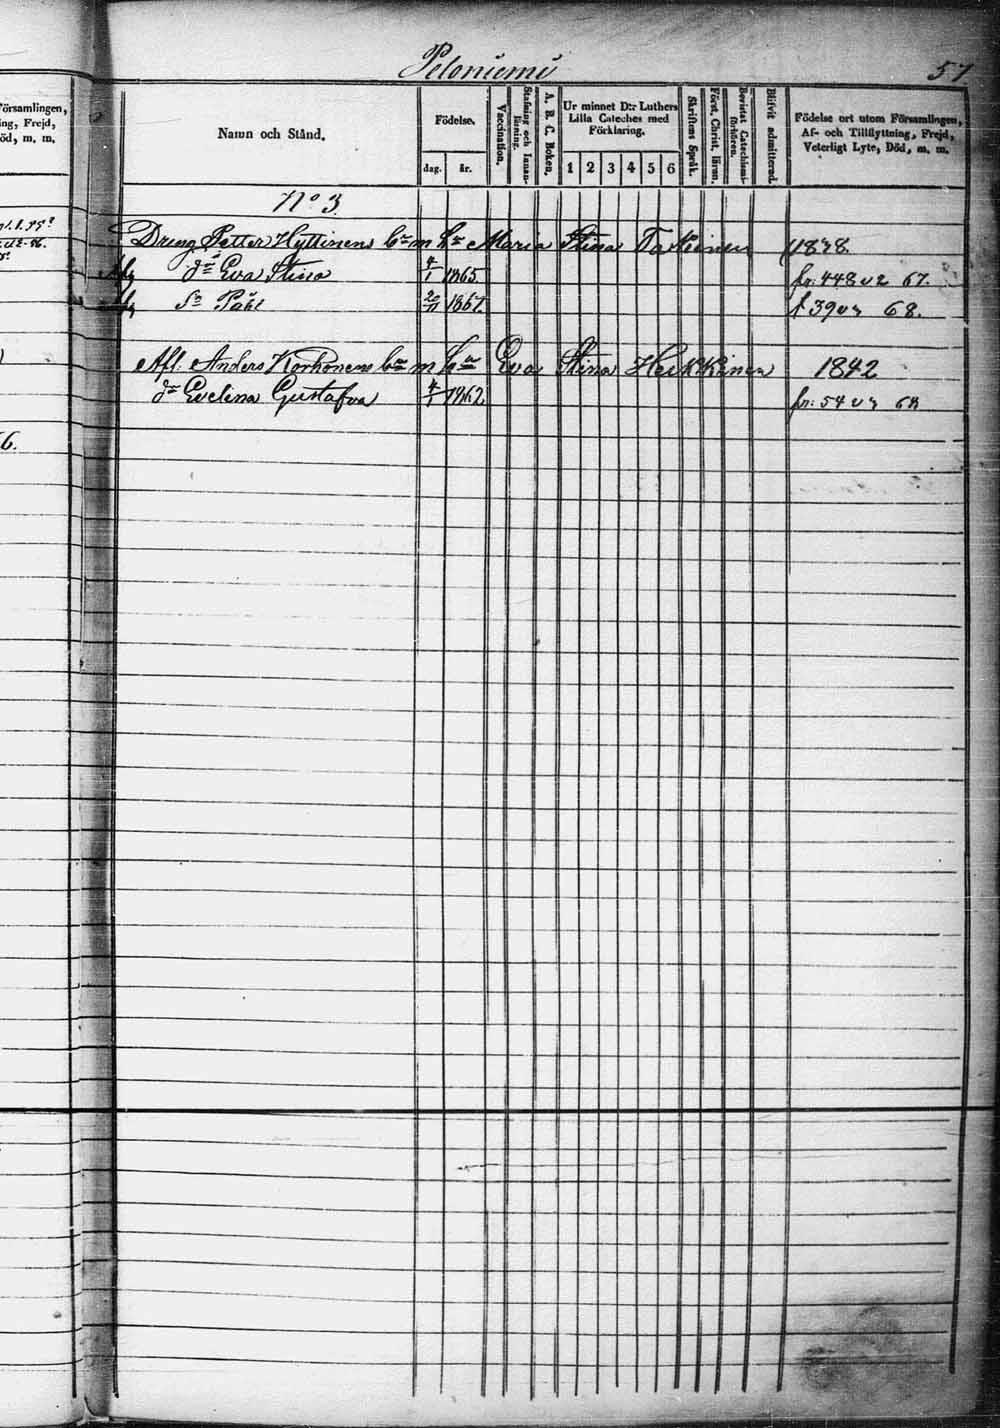 Peloniemi
57
Församlingen,
ing, Frejd,
öd, m. m.
Namn och Stånd.
Födelse.
dag.
år.
Vaccination.
Stafning och Innanläsning.
A. B. C. Boken.
Ur minnet D:r Luthers
Lilla Cateches med
Förklaring.
1 2 3 4 5 6
Skriftens Språk.
Först. Christ. läran.
Bevistat Catechismiförhören.
Blifvit admitterad.
Födelse ort utom Församlingen,
Af- och Tillflyttning, Frejd,
Veterligt Lyte, Död, m. m.
No 3.
Dreng Petter Hyttinens bn m hu Maria Stina Tarkinen 1838
dr Eva Stina 4/1 1865. fr: 448 v2 67.
Sn Påhl 20/11 1867. f 39 68.
Afl: Anders Korhonens bn m hu Eva Stina Heikkinen 1842
dr Evelina Gustafva 4/1 1862 fr: 54 68
6.